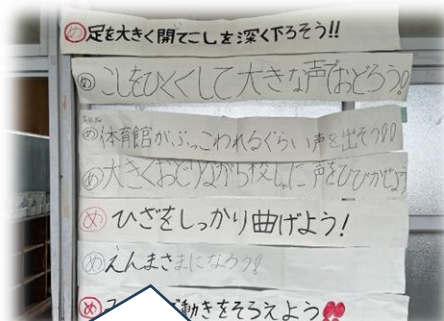 め 足を大きく開てこしを深く下ろそう!!
め こしをひくくして大きな声でおどろう!
め 体育館が、ぶっこわれるぐらい声を出そう!!
め 大きくおどりながら校しゃに声をひびかせよう
め ひざをしっかり曲げよう!
め えんまさまになろう!
め で動きをそろえよう!!